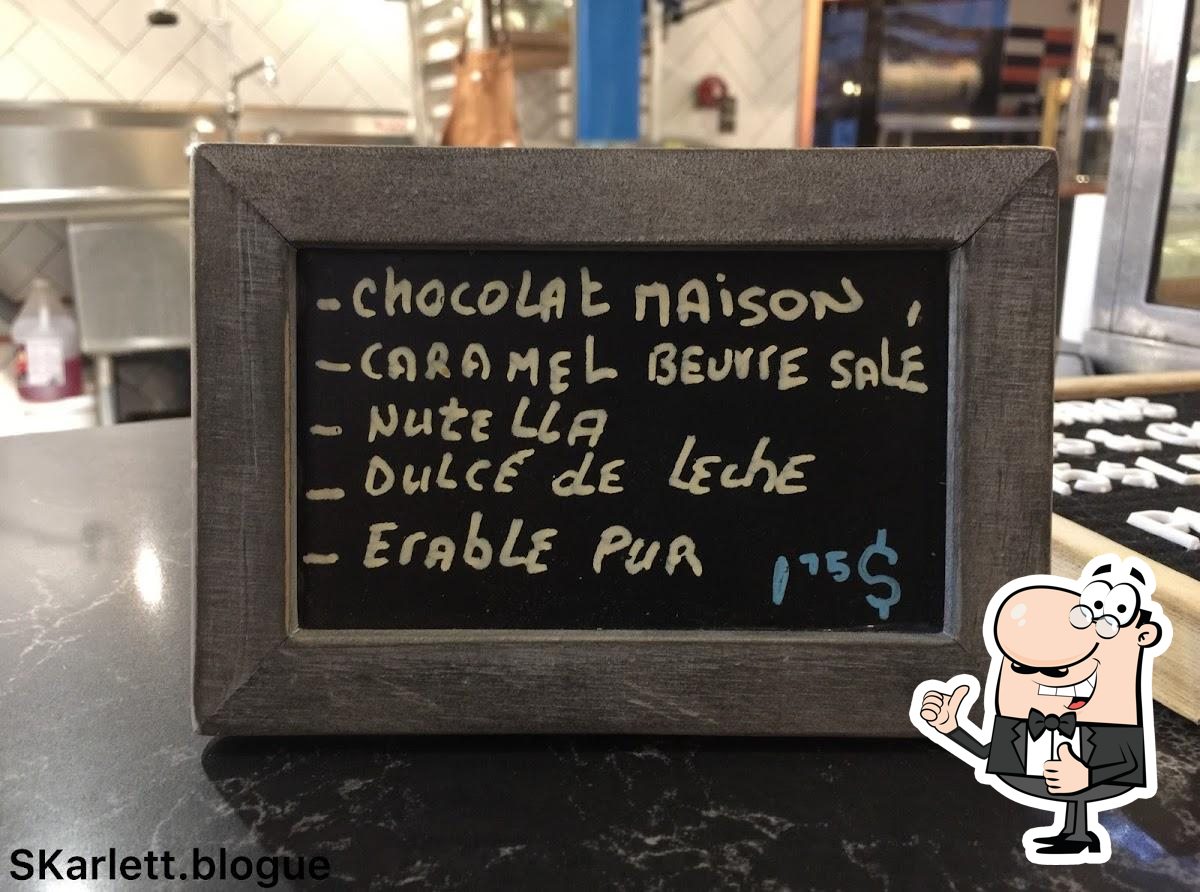 - CHOCOLAt MAISON
- CARAMEL BEURRE SALÉ
- NutELLA
- DULCE dE LEchE
- ErAbLE PUR
1 75 $
SKarlett.blogue